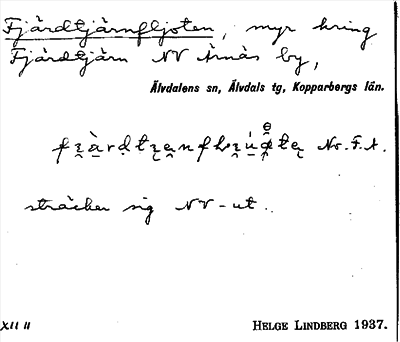 Fjärdtjärnfljoten, myr kring
Fjärdtjärn NV Årnäs by,
Älvdalens sn, Älvdals tg, Kopparbergs län.
Nr. F. A.
sträcker sig NV-ut.
XII 11
HELGE LINDBERG 1937.